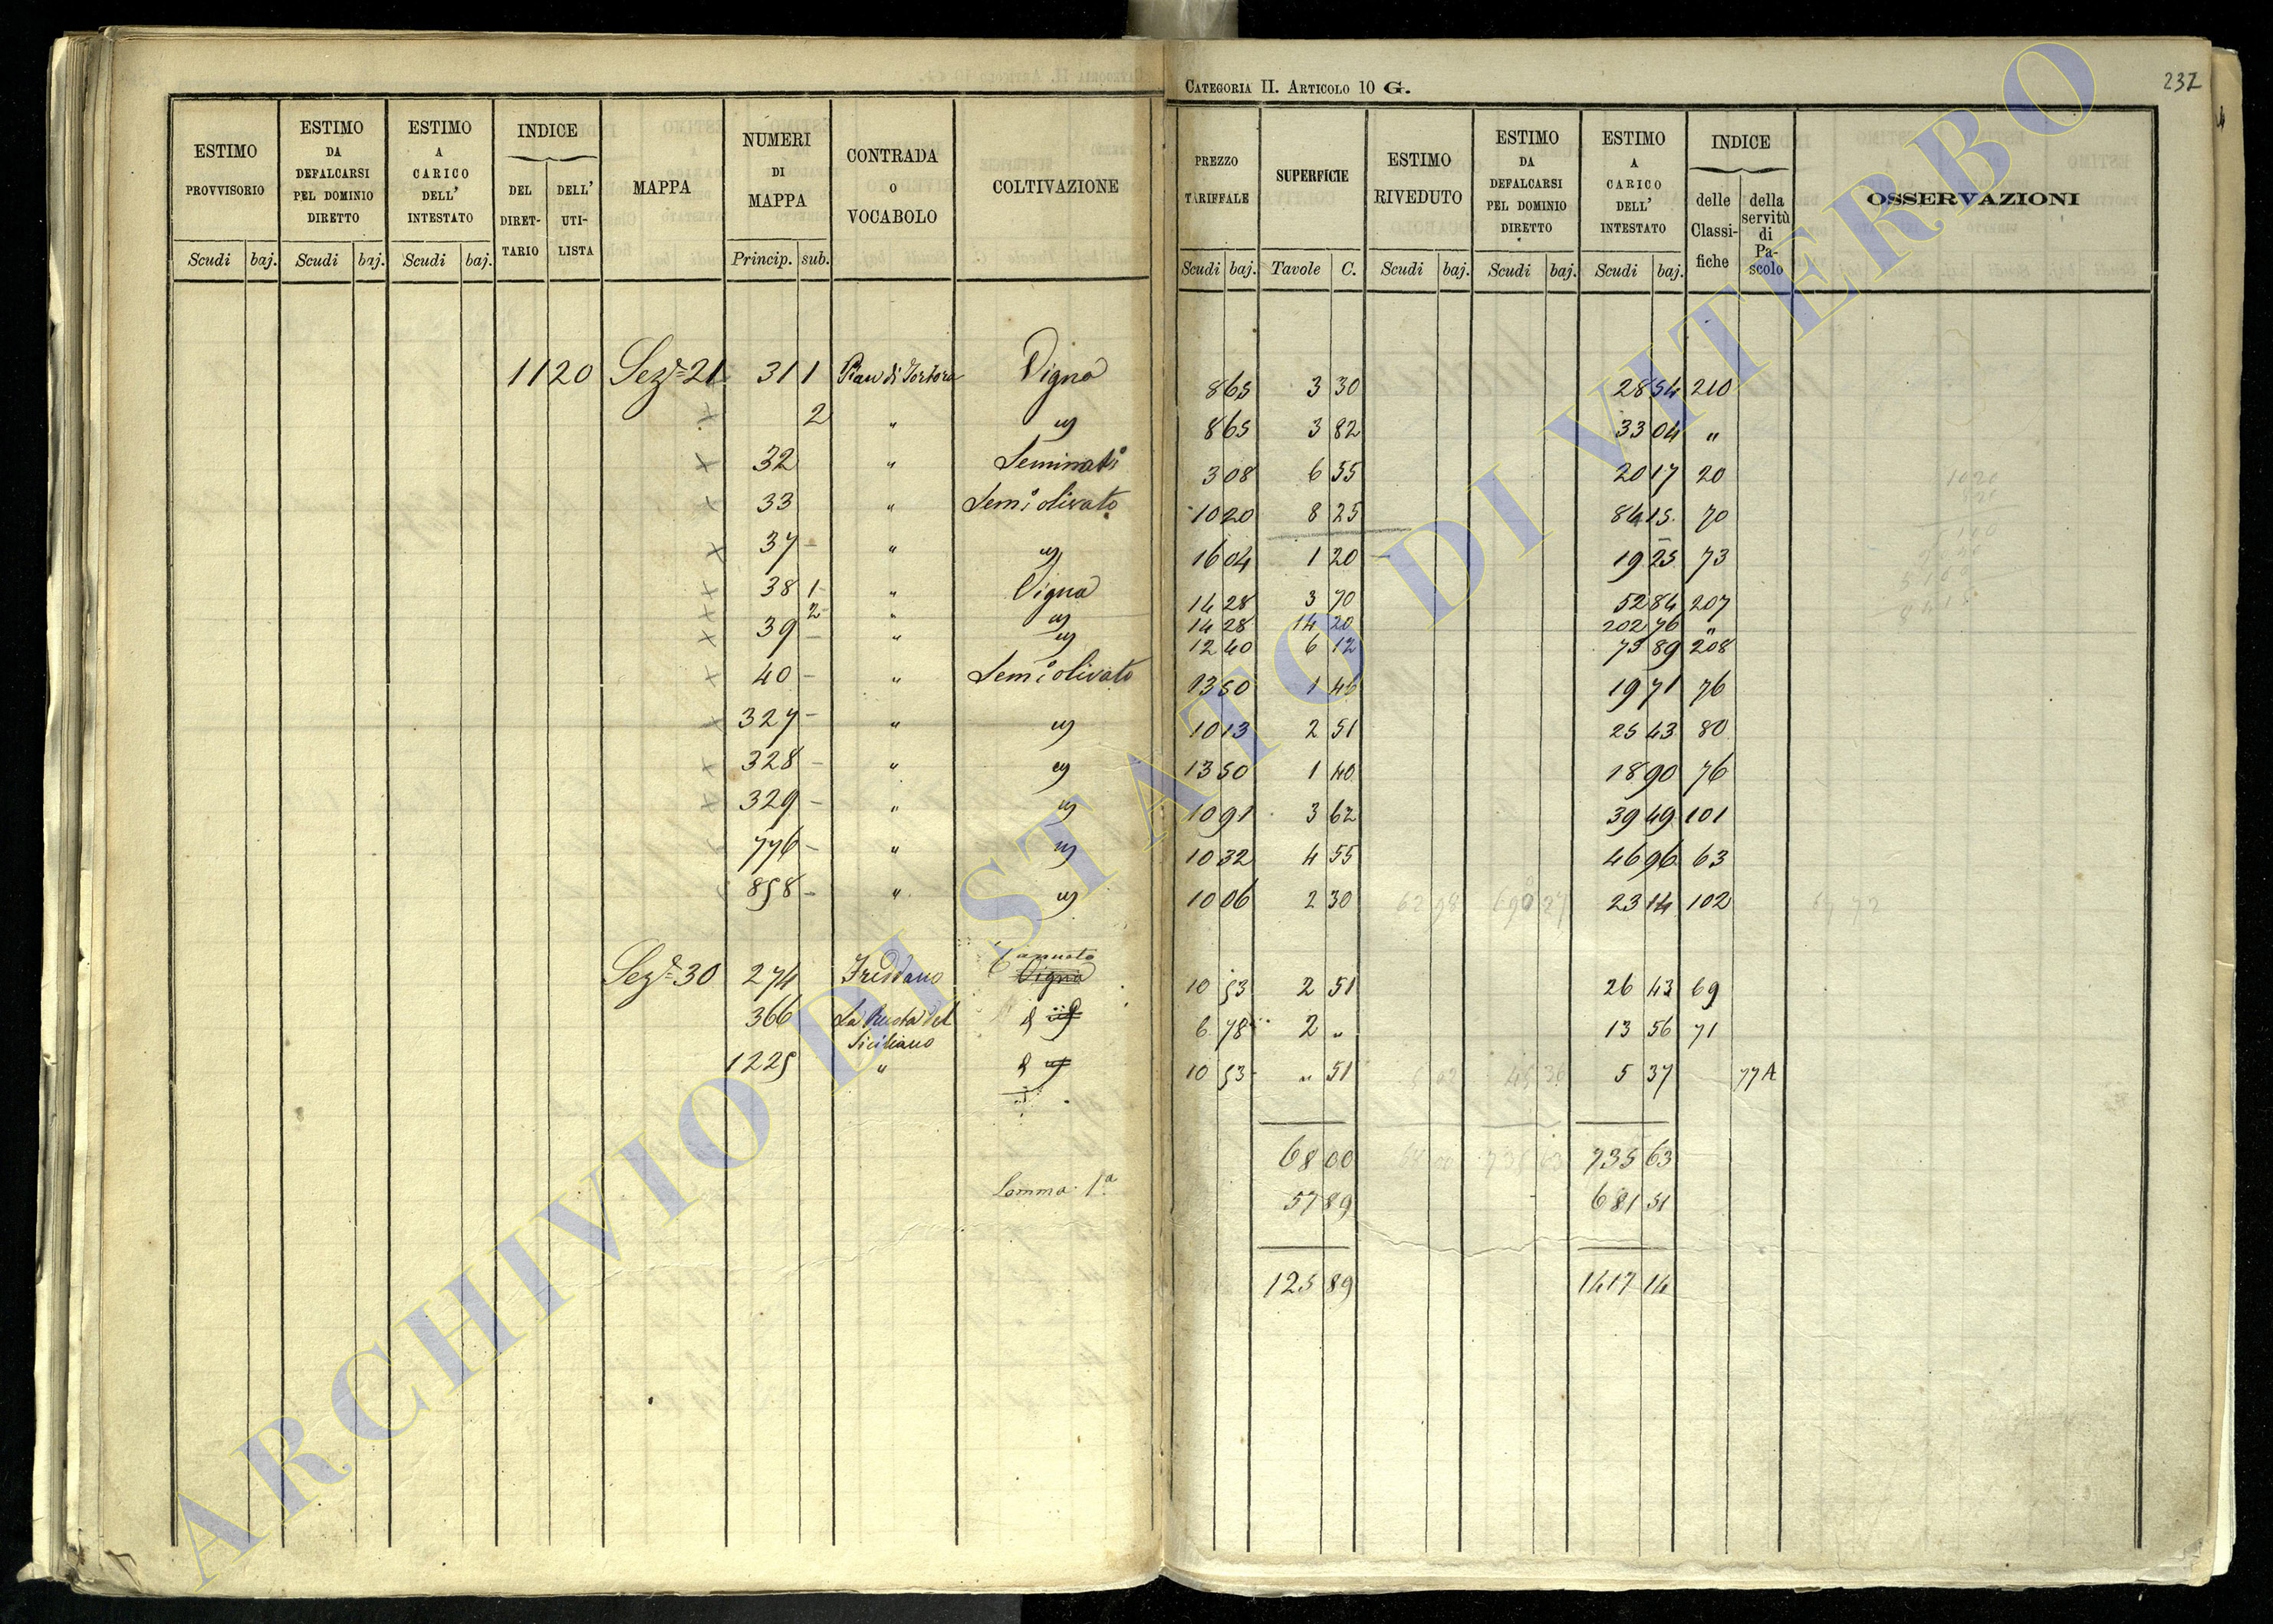 CATEGORIA II. ARTICOLO 10 G. 232
ESTIMO PROVVISORIO | ESTIMO DA DEFALCARSI PEL DOMINIO DIRETTO | ESTIMO A CARICO DELL' INTESTATO | INDICE DEL DIRETTARIO | DELL' UTILISTA | MAPPA | NUMERI DI MAPPA | CONTRADA O VOCABOLO | COLTIVAZIONE | PREZZO TARIFFALE | SUPERFICIE | ESTIMO RIVEDUTO | ESTIMO DA DEFALCARSI PEL DOMINIO DIRETTO | ESTIMO A CARICO DELL' INTESTATO | INDICE delle Classifiche | della servitù di Pascolo | OSSERVAZIONI
Scudi baj. Scudi baj. Scudi baj. Princip. sub. Scudi baj. Tavole C. Scudi baj. Scudi baj. Scudi baj.
1120 Sez.e 21 31 1 Pian di Tortora Vigna 8 65 3 30 28 54 210
2 " 8 65 3 82 33 04 "
32 " 3 08 6 55 20 17 20
33 " Sem.o olivato 10 20 8 25 84 15 70
37 " 16 04 1 20 19 25 73
38 1 " Vigna 14 28 3 70 52 84 207
2 " 14 28 14 20 202 76 "
39 " 12 40 6 12 75 89 208
40 " Sem.o olivato 13 50 1 46 19 71 76
327 " 10 13 2 51 25 43 80
328 " 13 50 1 40 18 90 76
329 " 10 91 3 62 39 49 101
776 " 10 32 4 55 46 96 63
858 " 10 06 2 30 23 14 102
Sez.e 30 274 Freddano Vigna 10 53 2 51 26 43 69
366 Siciliano 6 78 2 " 13 56 71
1225 " 10 53 " 51 5 37 77A
68 00 735 63
Somma 1a 57 89 681 51
125 89 1417 14
ARCHIVIO DI STATO DI VITERBO